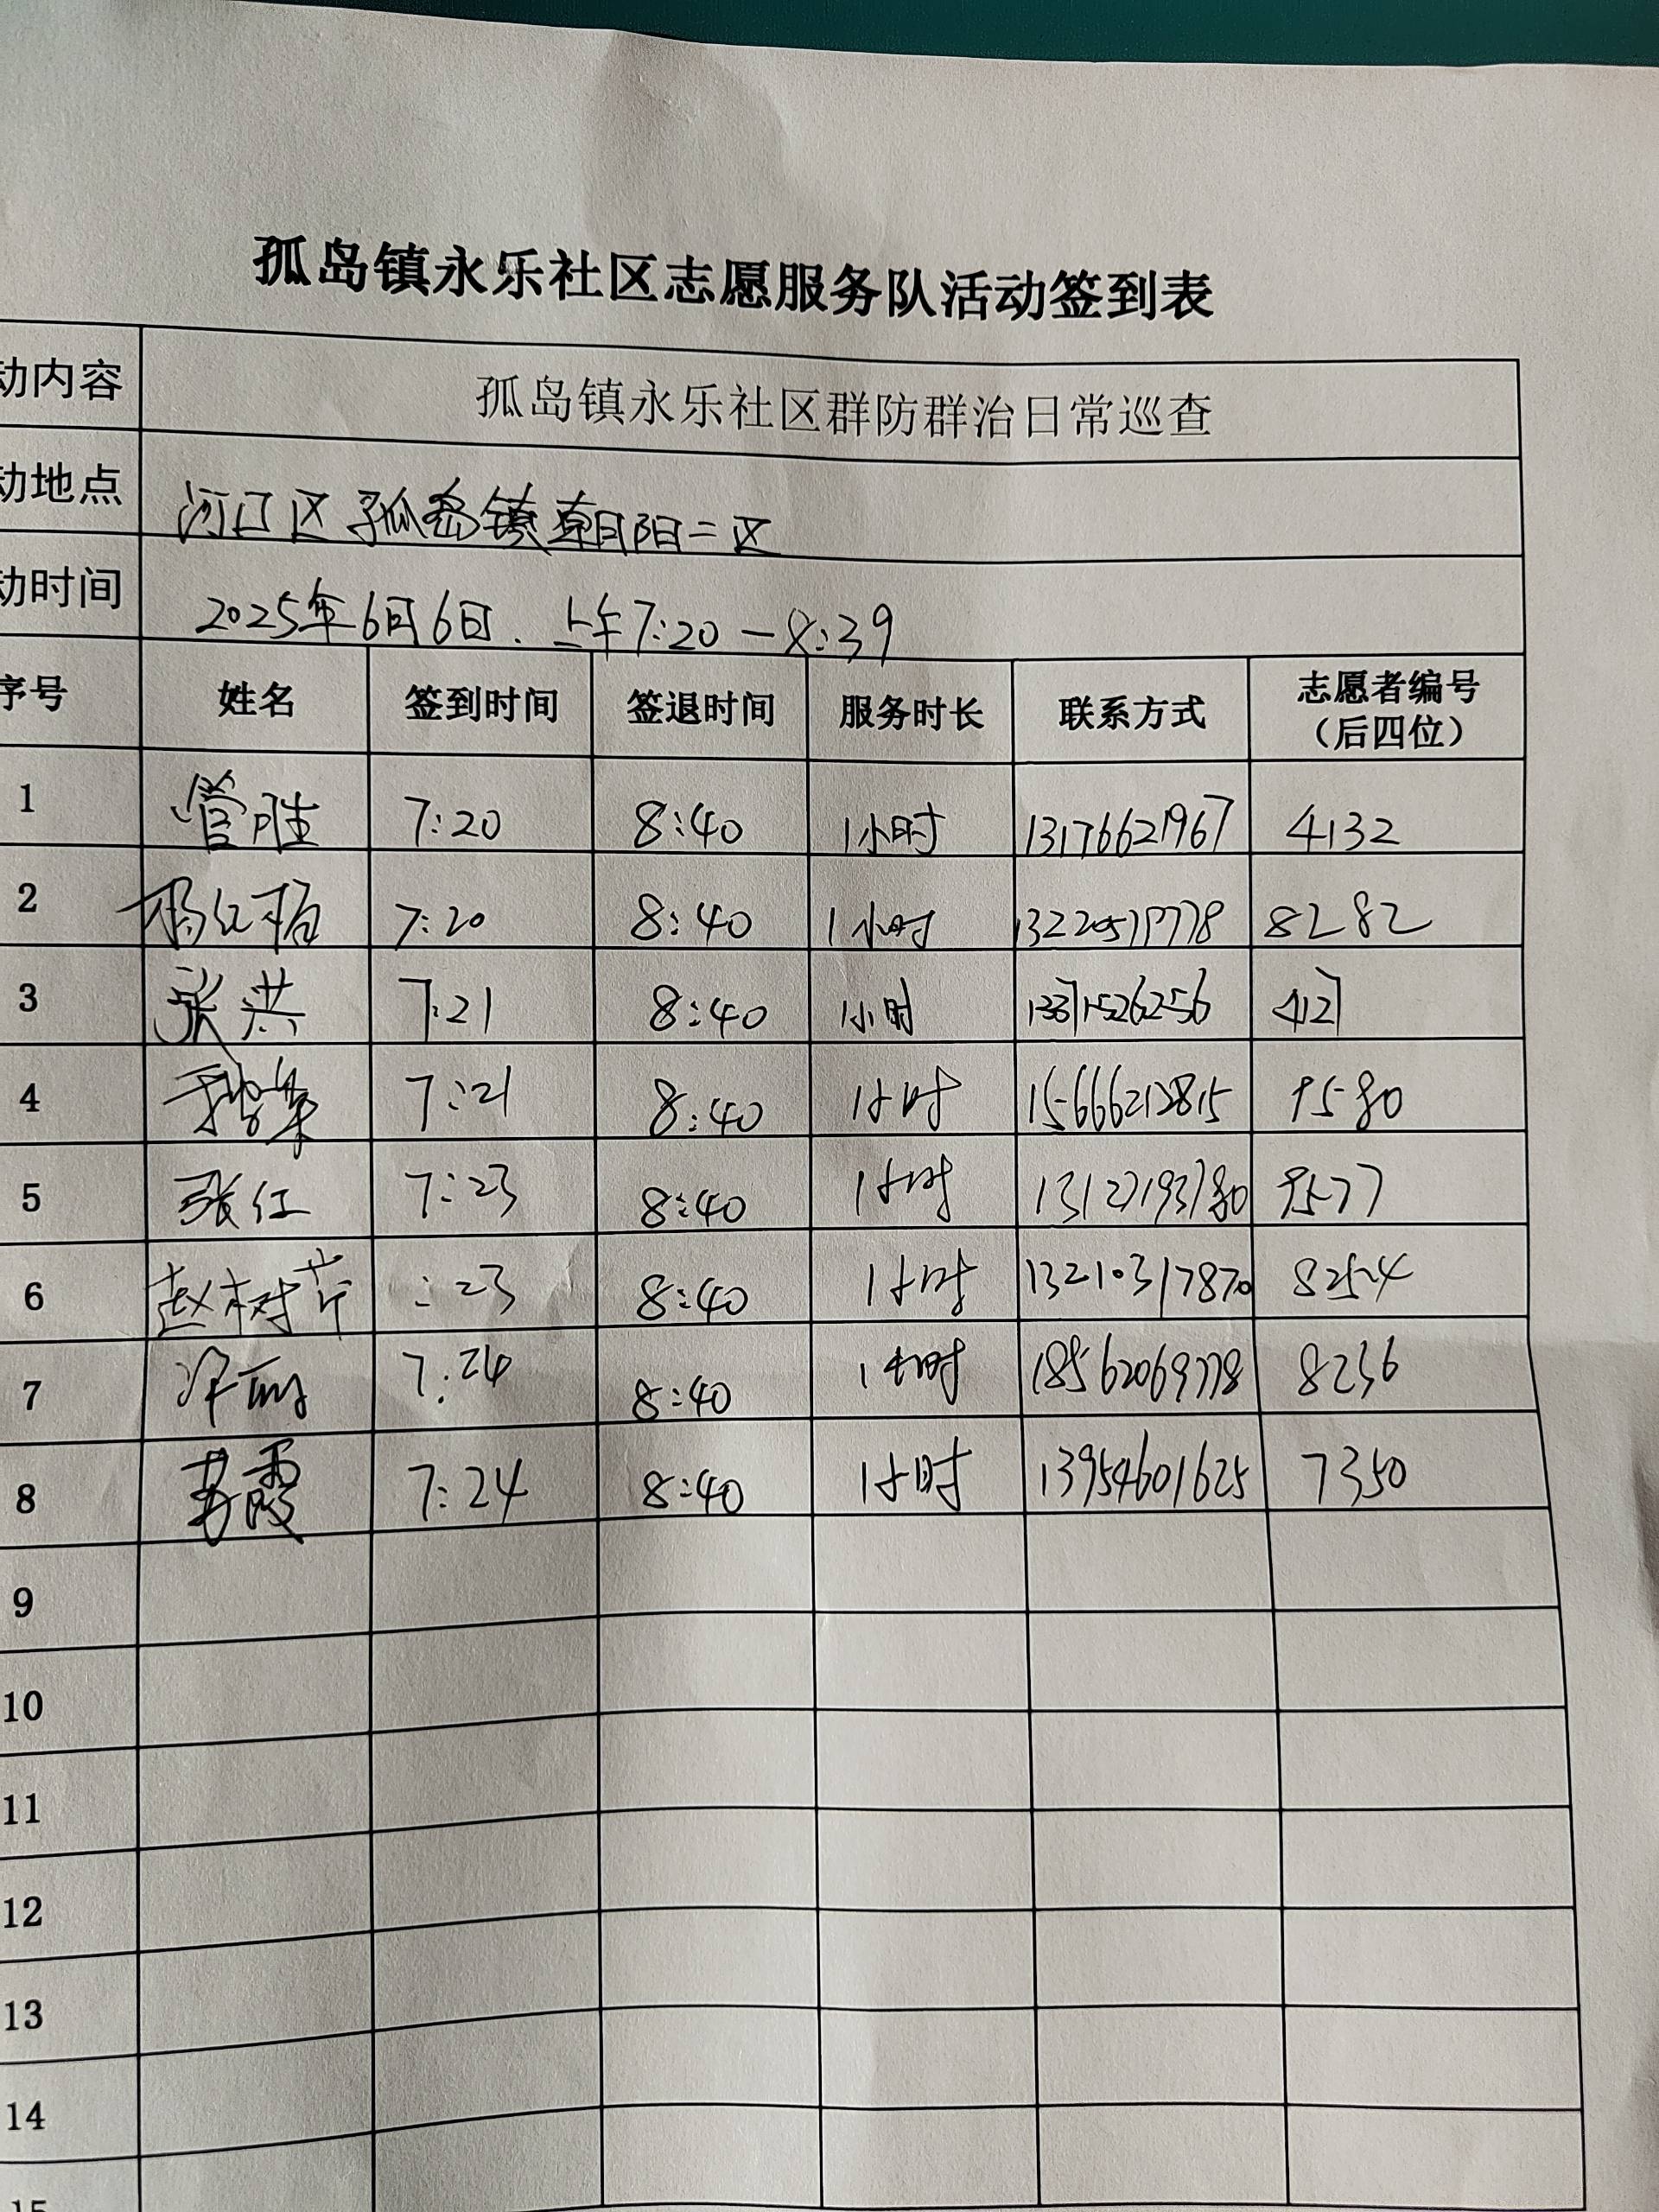 孤岛镇永乐社区志愿服务队活动签到表
动内容 孤岛镇永乐社区群防群治日常巡查
动地点 河口区孤岛镇朝阳二区
动时间 2025年6月6日.上午7:20-8:39
序号 姓名 签到时间 签退时间 服务时长 联系方式 志愿者编号
(后四位)
1 管胜 7:20 8:40 1小时 13176621967 4132
2 7:20 8:40 1小时 8282
3 张洪 7:21 8:40 1小时 13371526256 4121
4 7:21 8:40 1小时 15666212815 9580
5 张红 7:23 8:40 1小时 13127193780 9577
6 赵树芹 :23 8:40 1小时 13210317870 8254
7 7:24 8:40 1小时 18562069778 8236
8 7:24 8:40 1小时 13954601625 7350
9
10
11
12
13
14
15